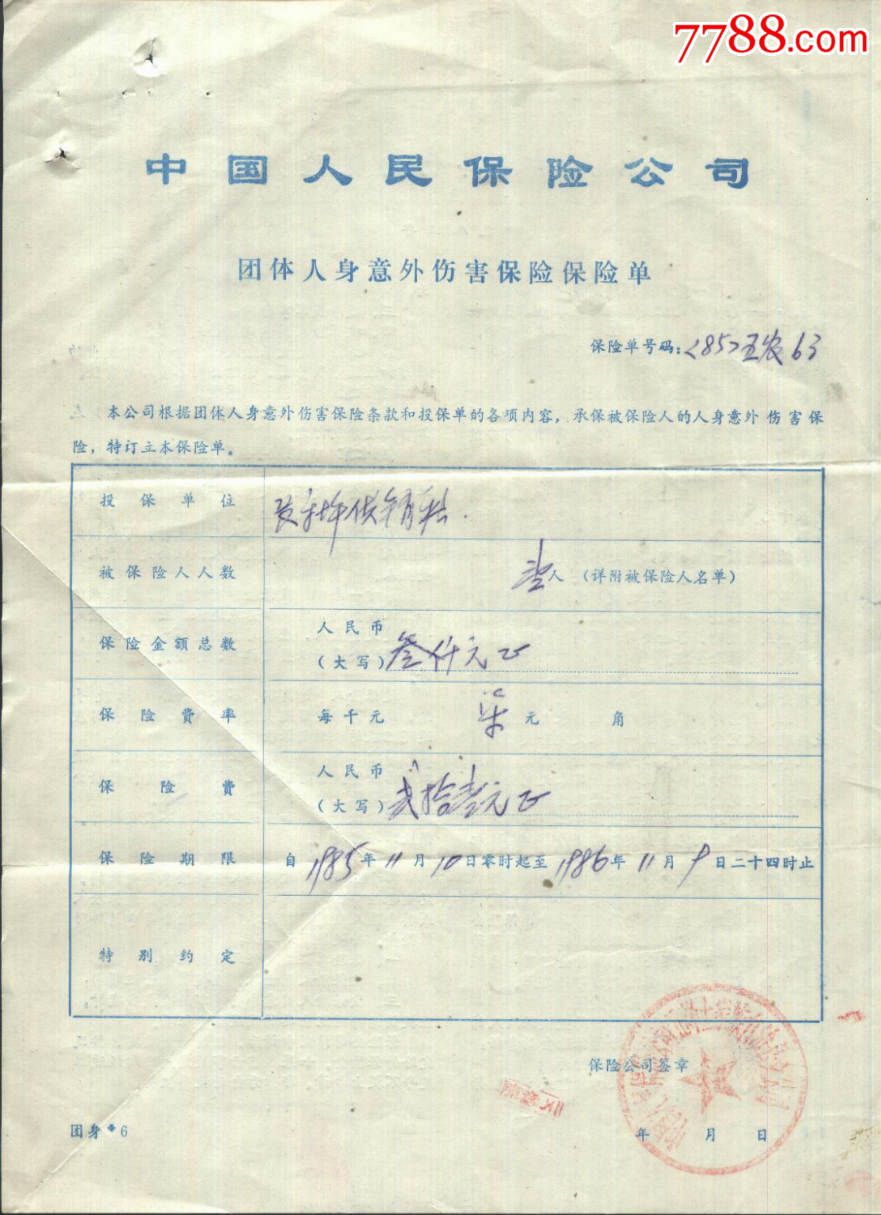 7788.com
中国人民保险公司
团体人身意外伤害保险保险单
保险单号码：<85>五农63
本公司根据团体人身意外伤害保险条款和投保单的各项内容，承保被保险人的人身意外伤害保
险，特订立本保险单。
投保单位
被保险人人数 壹人（详附被保险人名单）
保险金额总数 人民币
（大写）叁仟元正
保险费率 每千元 柒元 角
保险费 人民币
（大写）贰拾壹元正
保险期限 自1985年11月10日零时起至1986年11月9日二十四时止
特别约定
保险公司签章
团身*6
年 月 日